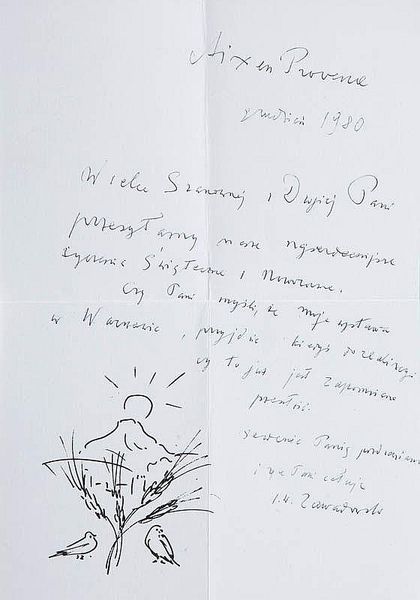 Aix en Provence
grudzień 1980
Wielce Szanownej i Drogiej Pani
przesyłamy nasze najserdeczniejsze
życzenia Świąteczne i Noworoczne.
Czy Pani myśli, że moja wystawa
w Warszawie, przyjdzie kiedyś do realizacji
czy to już jest zapomniana
przeszłość.
serdecznie Panią pozdrawiam
i rączki całuję
J. W. Zawadowski